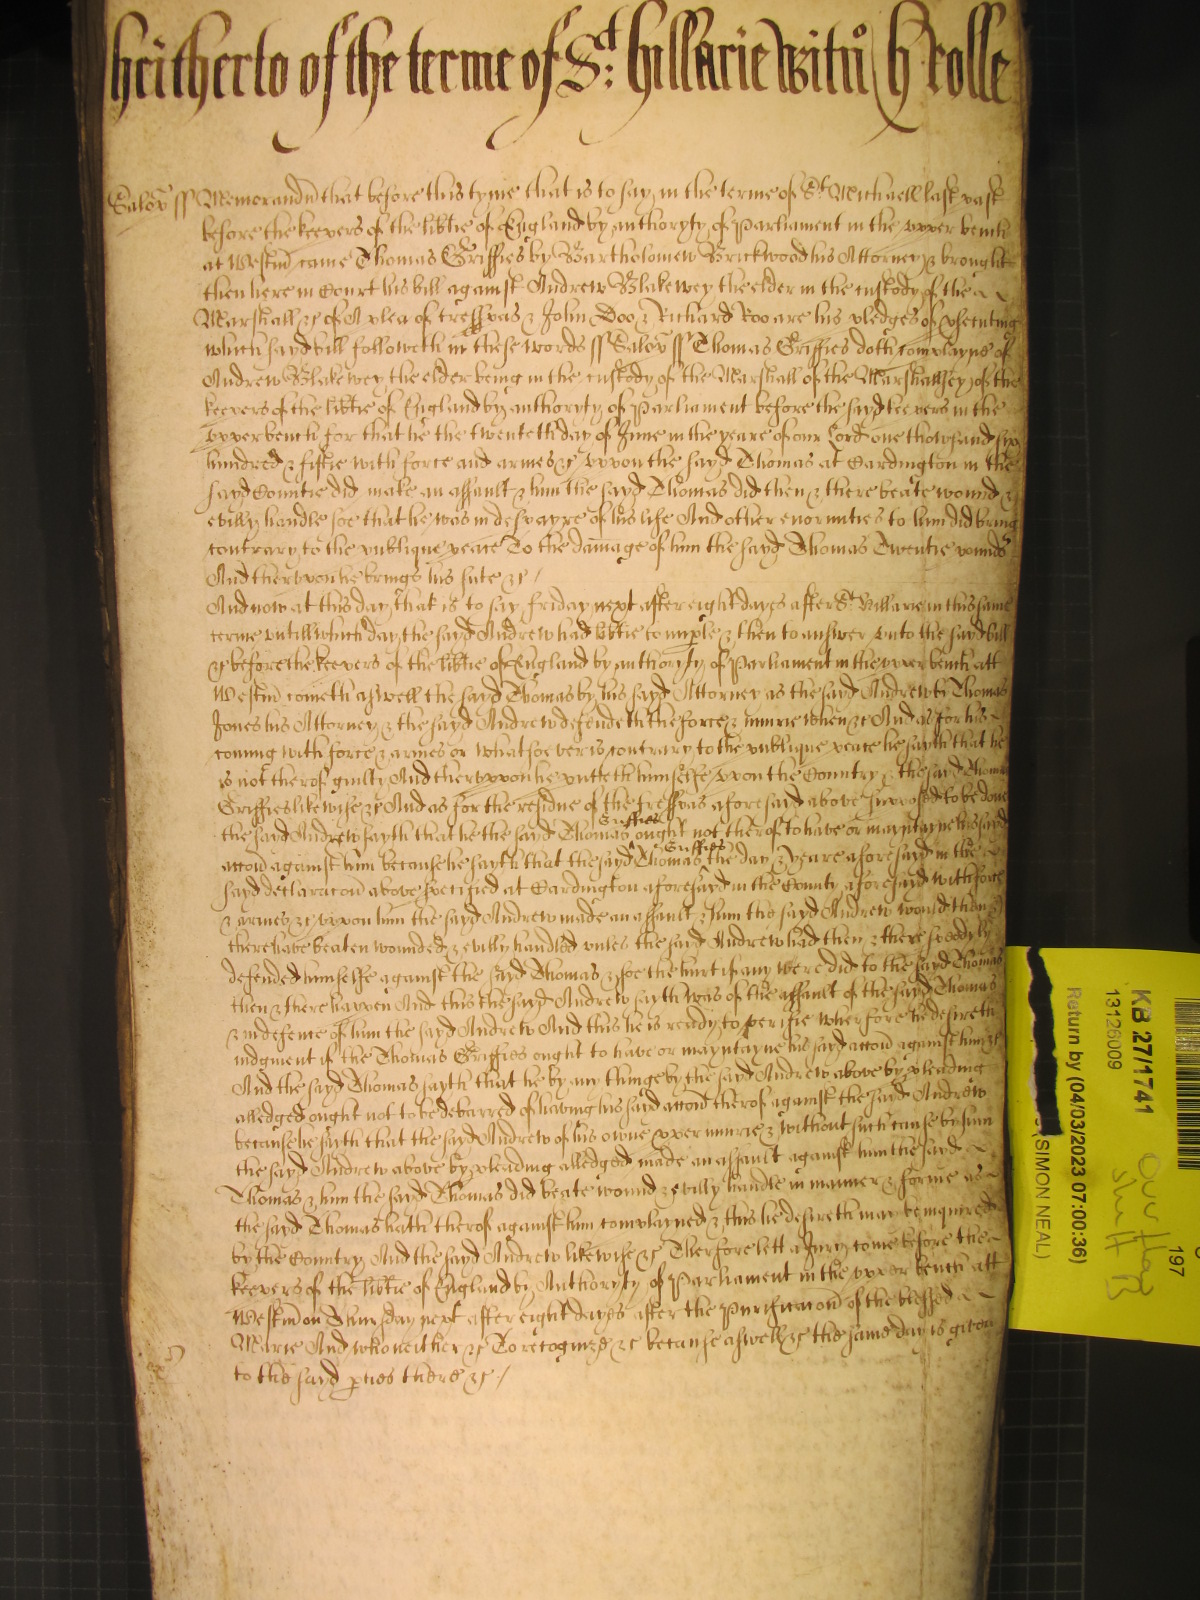 heitherto of the terme of St: hillarie Witn h Rolle
Salop ss Memorandu that before this tyme that is to say in the terme of St Michaell last past
before the keepers of the libtie of England by authoryty of Parliament in the upper bench
at Westm came Thomas Griffies by Bartholomew Brickwood his Attorney & brought
then here in Court his bill against Andrew Blakewey the elder in the custody of the
Marshall &c of A plea of tresspas & John Doo & Richard Roo are his pledges of psecuting
which sayd bill followeth in these words ss Salop ss Thomas Griffies doth complayne of
Andrew Blakewey the elder being in the custody of the Marshall of the Marshallsey of the
keepers of the libtie of England by authoryty of Parliament before the sayd keepers in the
upper bench for that he the twenteth day of June in the yeare of our Lord one thowsand six
hundred & fiftie with force and armes &c uppon the sayd Thomas at Cardington in the
sayd Countie did make an assault & him the sayd Thomas did then & there beate wound &
evilly handle soe that he was in despayre of his life And other enormities to him did bring
contrary to the publique peace To the damage of him the sayd Thomas Twentie pounds
And therupon he brings his sute &c /
And now at this day that is to say friday next after eight dayes after St Hillarie in this same
terme untill which day the sayd Andrew had libtie to imple & then to answer unto the sayd bill
&c before the keepers of the libtie of England by authoryty of Parliament in the upper bench att
Westm cometh aswell the sayd Thomas by his sayd Attorney as the sayd Andrew by Thomas
Jones his Attorney & the sayd Andrew defendeth the force & iniurie when &c And as for his
coming with force & armes or whatsoever is contrary to the publique peace he sayth that he
is not therof guilty And theruppon he putteth himselfe upon the Country & the said Thomas
Griffies likewise &c And as for the residue of the tresspas aforesaid above supposed to be done
the said Andrew sayth that he the said Thomas Griffies ought not therof to have or mayntayne his said
accon against him because he sayth that the sayd Thomas Griffies the day & yeare aforesaid in the
said declaracon above specified at Cardington aforesayd in the County aforesaid with force
& armes &c uppon him the sayd Andrew made an assault & him the sayd Andrew would then &
there have beaten wounded & evilly handled unles the said Andrew had then & there speedyly
defended himselfe against the sayd Thomas & soe the hurt if any were did to the sayd Thomas
then & there happen And this the sayd Andrew sayth was of the assault of the sayd Thomas
& in defence of him the sayd Andrew And this he is ready to verifie wherfore he desireth
iudgment if the Thomas Griffies ought to have or mayntayne his sayd accon against him &c
And the sayd Thomas sayth that he by any thinge by the sayd Andrew above by pleading
alledged ought not to be debarred of having his said accon therof against the said Andrew
because he sayth that the sayd Andrew of his owne pper iniurie & without such cause by him
the sayd Andrew above by pleading alledged made an assault against him the sayd
Thomas & him the sayd Thomas did beate wound & evilly handle in manner & forme as
the sayd Thomas hath therof against him complayned & this he desireth may be inquired
by the Country And the sayd Andrew likewise &c Therfore lett a Jury come before the
keepers of the libtie of England by Authoryty of Parliament in the upper bench att
Westm on Thursday next after eight dayes after the Purificacon of the blessed
Marie And who neither &c To recognize &c because aswell &c the same day is given
to the sayd pties there &c /
KB 27/1741
13126009
Return by (04/03/2023 07:00:36)
(SIMON NEAL)
197